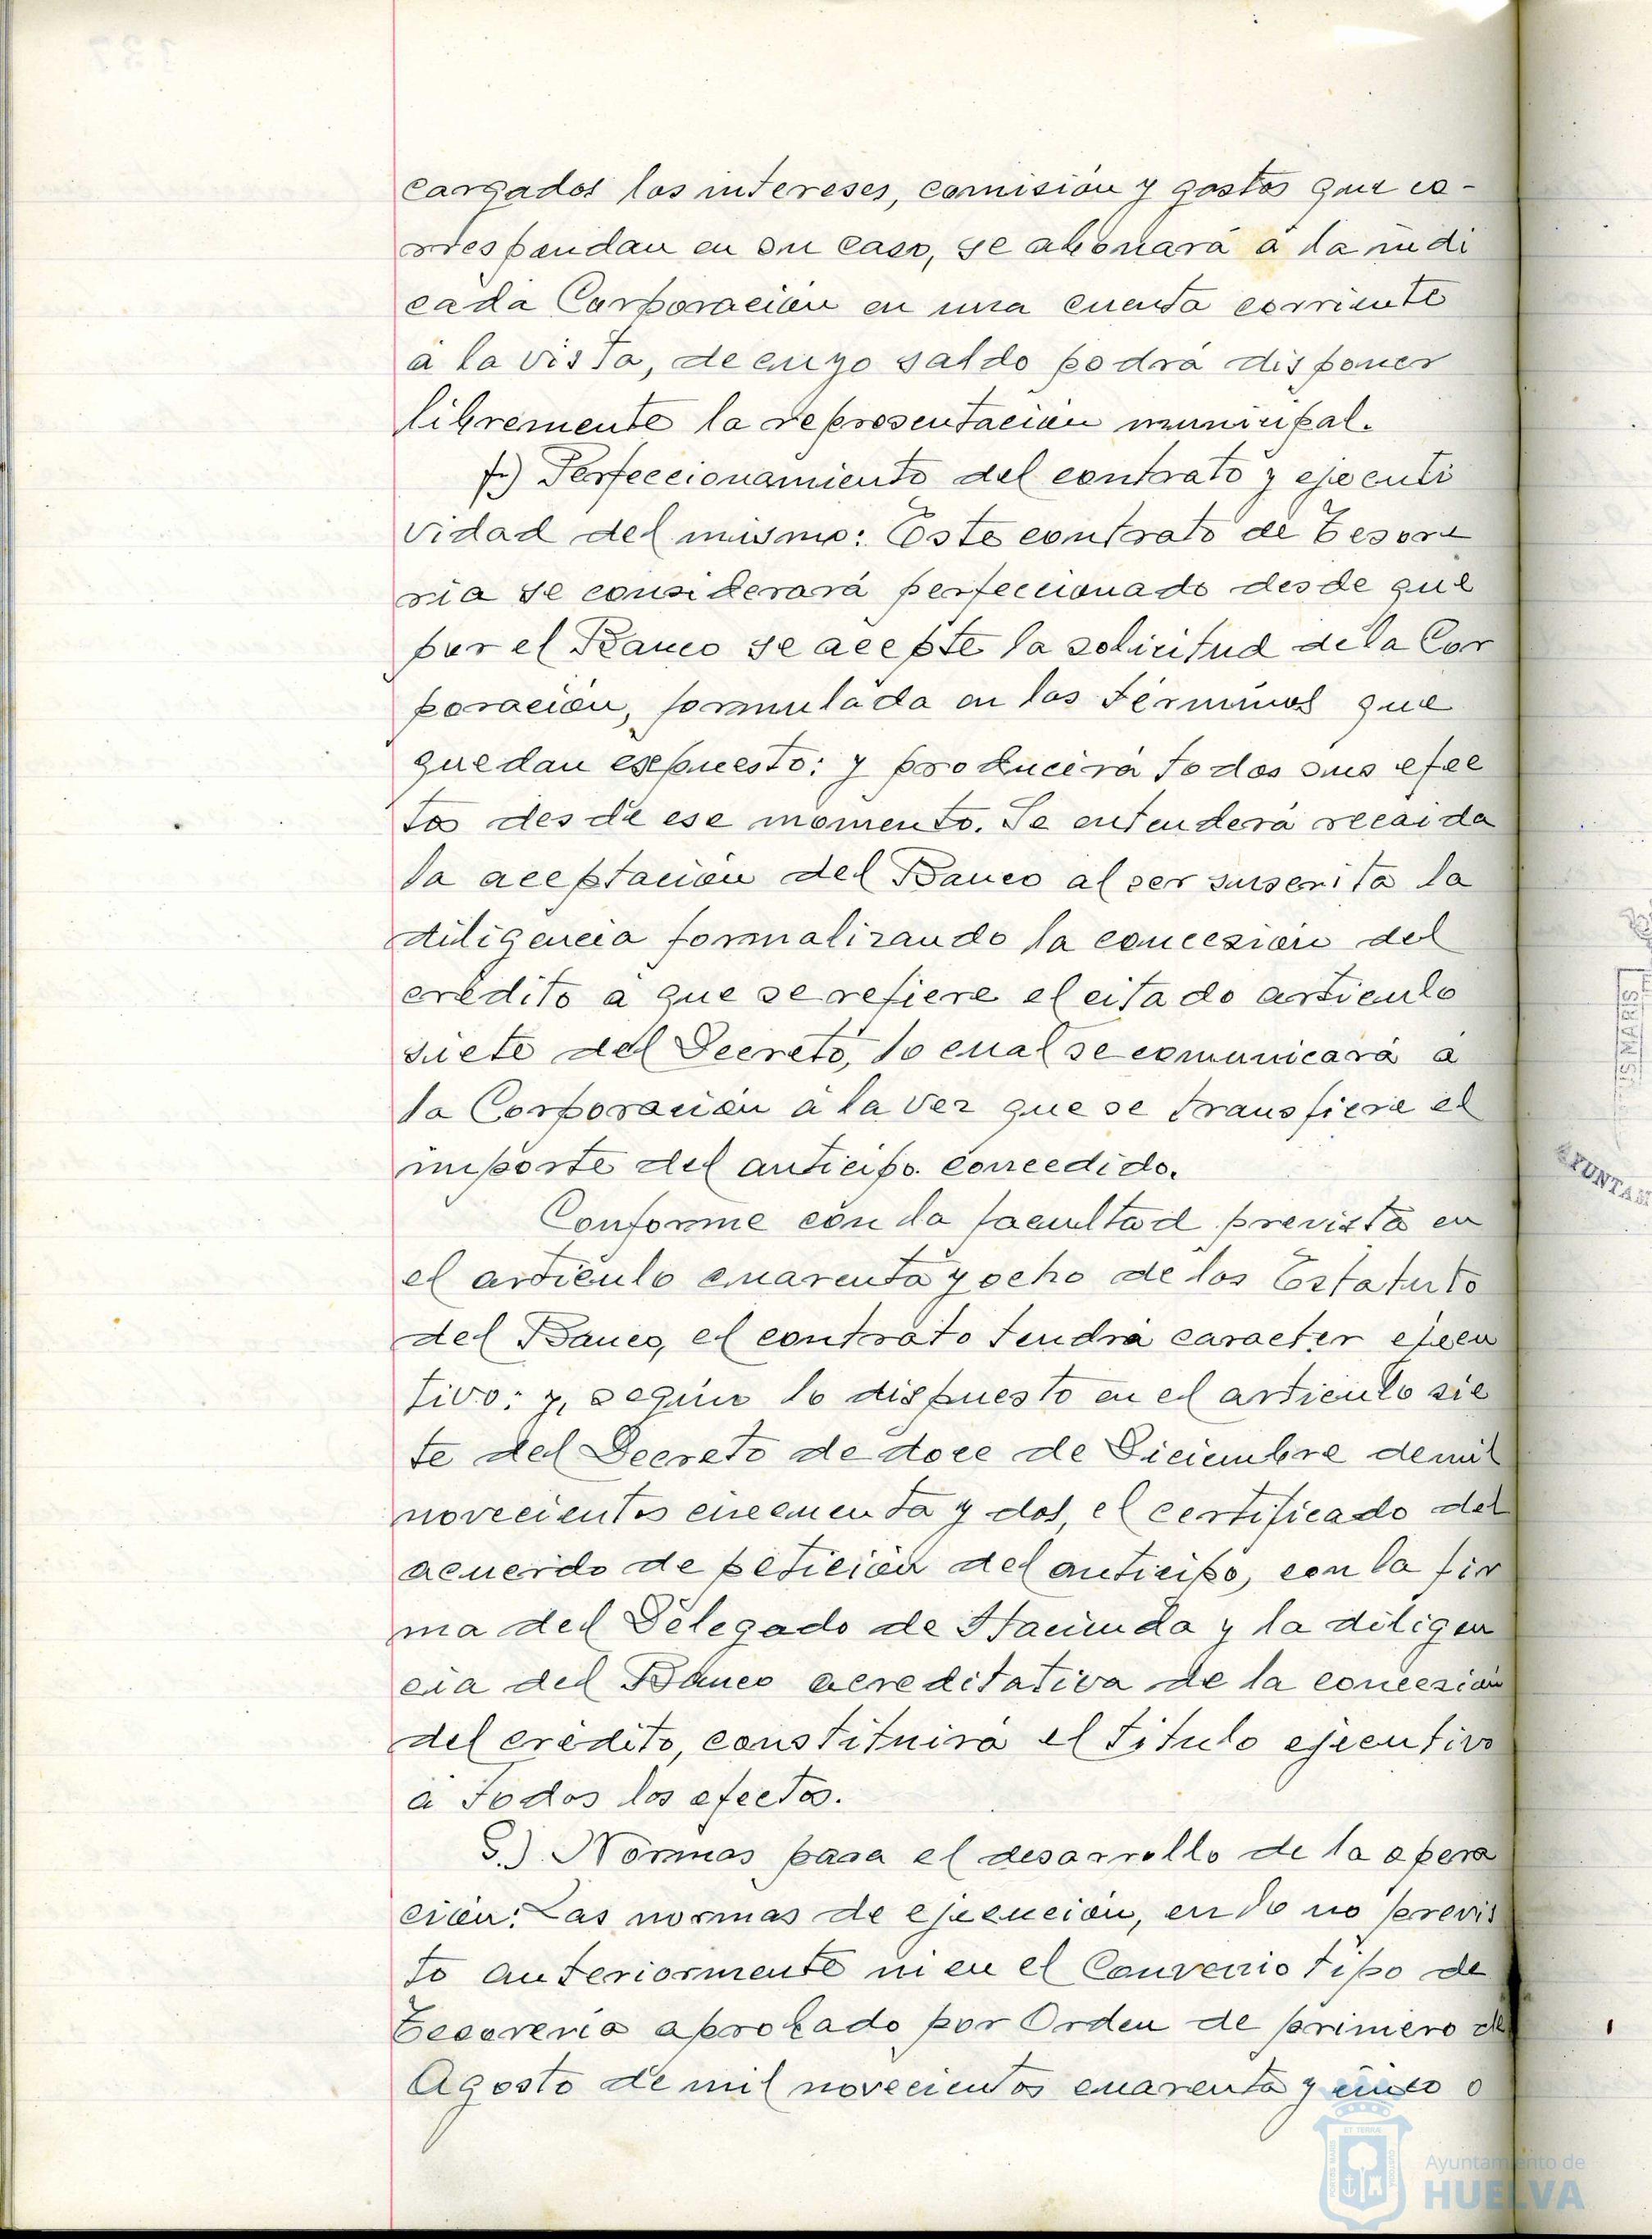 cargados los intereses, comisión y gastos que co-
rrespondan en su caso, se abonará á la indi
cada Corporación en una cuenta corriente
á la vista, de cuyo saldo podrá disponer
libremente la representación municipal.
f.) Perfeccionamiento del contrato y ejecuti
vidad del mismo: Este contrato de Tesore
ria se considerará perfeccionado desde que
por el Banco se acepte la solicitud de la Cor
poración, formulada en los términos que
quedan espuesto: y producirá todos sus efec
tos desde ese momento. Se entenderá recaida
la aceptación del Banco al ser suscrita la
diligencia formalizando la concesión del
crédito a que se refiere el citado articulo
siete del Decreto, lo cual se comunicará a
la Corporación á la vez que se transfiere el
importe del anticipo concedido.
Conforme con la facultad prevista en
el articulo cuarenta y ocho de los Estatuto
del Banco, el contrato tendrá caracter ejecu
tivo: y, según lo dispuesto en el articulo sie
te del Decreto de doce de Diciembre de mil
novecientos cincuenta y dos, el certificado del
acuerdo de petición del anticipo, con la fir
ma del Delegado de Hacienda y la diligen
cia del Banco acreditativa de la concesión
del crédito, constituirá el titulo ejecutivo
á todos los efectos.
G.) Normas para el desarrollo de la opera
ción: Las normas de ejecución, en lo no previs
to anteriormente ni en el Convenio tipo de
Tesoreria aprobado por Orden de primero de
Agosto de mil novecientos cuarenta y cinco o
AYUNTAM
Ayuntamiento de
HUELVA